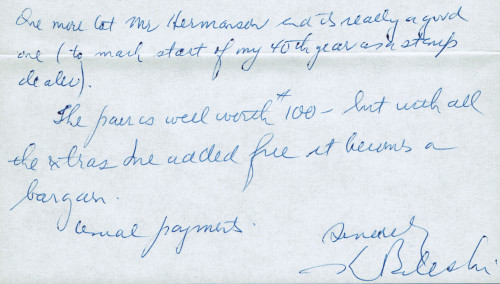 One more lot Mr Hermanson and it's really a good
one (to mark start of my 40th year as a stamp
dealer).
The pair is well worth $100 – but with all
the extras I've added free it becomes a
bargain.
Usual payments.
Sincerely
K Bileski